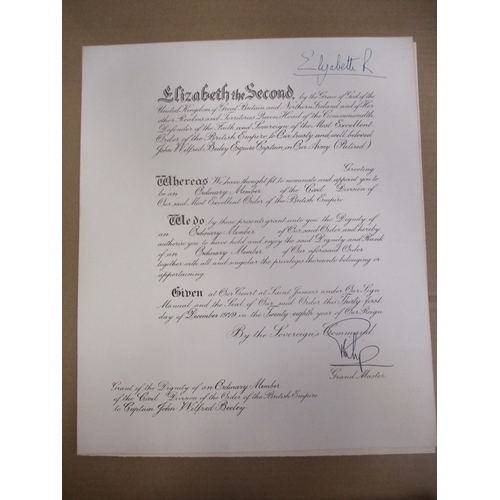 Elizabeth R
Elizabeth the Second, by the Grace of God of the
United Kingdom of Great Britain and Northern Ireland and of Her
other Realms and Territories Queen, Head of the Commonwealth,
Defender of the Faith and Sovereign of the Most Excellent
Order of the British Empire to Our trusty and well beloved
John Wilfred Beeley Esquire Captain in Our Army (Retired)
Greeting
Whereas We have thought fit to nominate and appoint you to
be an Ordinary Member of the Civil Division of
Our said Most Excellent Order of the British Empire
We do by these presents grant unto you the Dignity of
an Ordinary Member of Our said Order and hereby
authorise you to have hold and enjoy the said Dignity and Rank
of an Ordinary Member of Our aforesaid Order
together with all and singular the privileges thereunto belonging or
appertaining.
Given at Our Court at Saint James's under Our Sign
Manual and the Seal of Our said Order this Thirty first
day of December 1979 in the Twenty eighth year of Our Reign
By the Sovereign's Command.
Philip
Grand Master
Grant of the Dignity of an Ordinary Member
of the Civil Division of the Order of the British Empire
to Captain John Wilfred Beeley